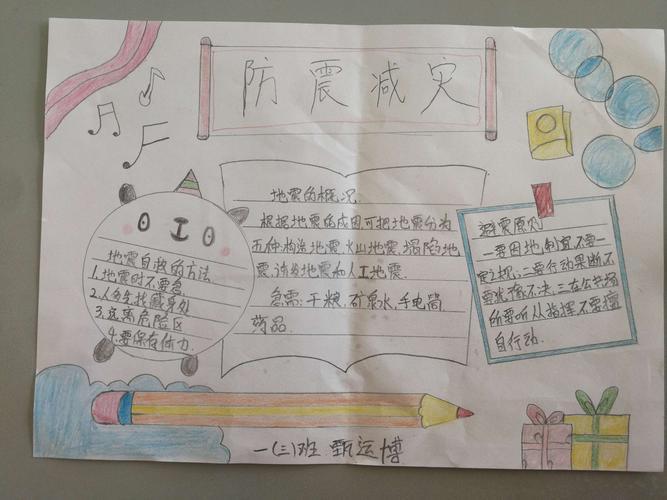 防震减灾
地震的概况
根据地震的成因可把地震分为
五种:构造地震、火山地震、塌陷地
震、诱发地震和人工地震.
急需:干粮.矿泉水,手电筒,
药品.
地震自救的方法.
1.地震时不要急.
2.人多先找藏身处
3.远离危险区
4.要保存体力.
避震原则
一要因地制宜不要一
定之规;二要行动果断不
要犹豫不决.三在公共场
所要听从指挥不要擅
自行动.
一(三)班 甄运博